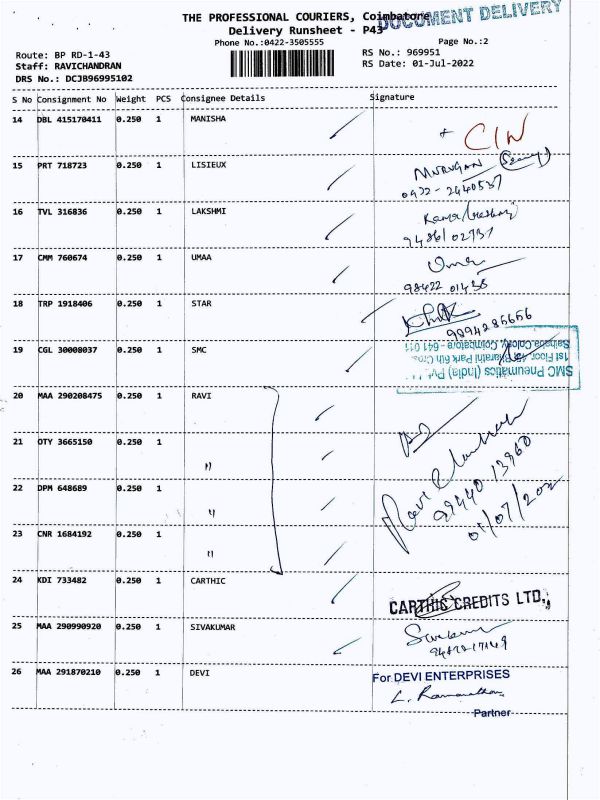 DOCUMENT DELIVERY
THE PROFESSIONAL COURIERS, Coimbatore
Delivery Runsheet - P43
Phone No.:0422-3505555
Page No.:2
Route: BP RD-1-43
RS No.: 969951
Staff: RAVICHANDRAN
RS Date: 01-Jul-2022
DRS No.: DCJB96995102
S No Consignment No Weight PCS Consignee Details Signature
14 DBL 415170411 0.250 1 MANISHA
15 PRT 718723 0.250 1 LISIEUX MURUGAN
0422-2440537
16 TVL 316836 0.250 1 LAKSHMI
17 CMM 760674 0.250 1 UMAA
98422 01436
18 TRP 1918406 0.250 1 STAR
9894285656
19 CGL 30008037 0.250 1 SMC
SMC Pneumatics (India) Pvt
1st Floor, Bharathi Park 6th Cross
Saibaba Colony, Coimbatore - 641 011
20 MAA 290208475 0.250 1 RAVI
21 OTY 3665150 0.250 1 "
22 DPM 648689 0.250 1 "
23 CNR 1684192 0.250 1 "
Ravi
94440 13960
24 KDI 733482 0.250 1 CARTHIC
CARTHIS CREDITS LTD.,
25 MAA 290990920 0.250 1 SIVAKUMAR
26 MAA 291870210 0.250 1 DEVI For DEVI ENTERPRISES
Partner